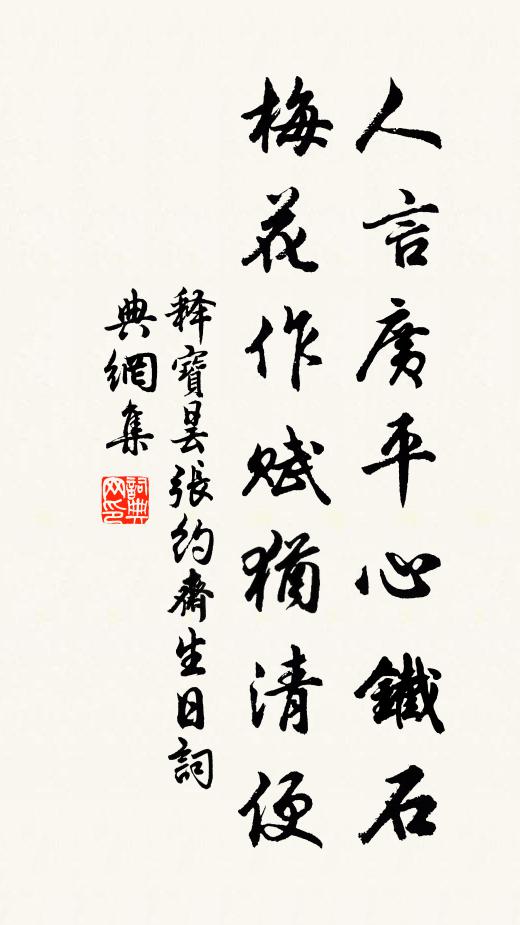 人言廣平心鐵石
梅花作賦猶清便
釋寶曇張約齋生日詞
典網集
詞典网印